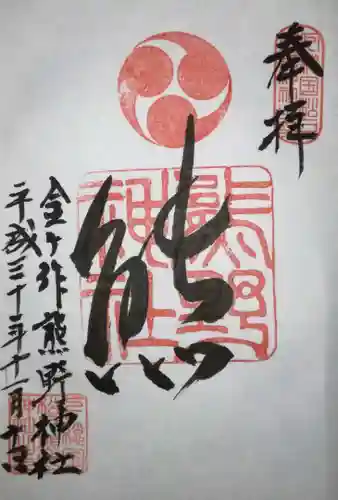 奉拝
熊
熊野神社
金ヶ作熊野神社
平成三十年十一月十日